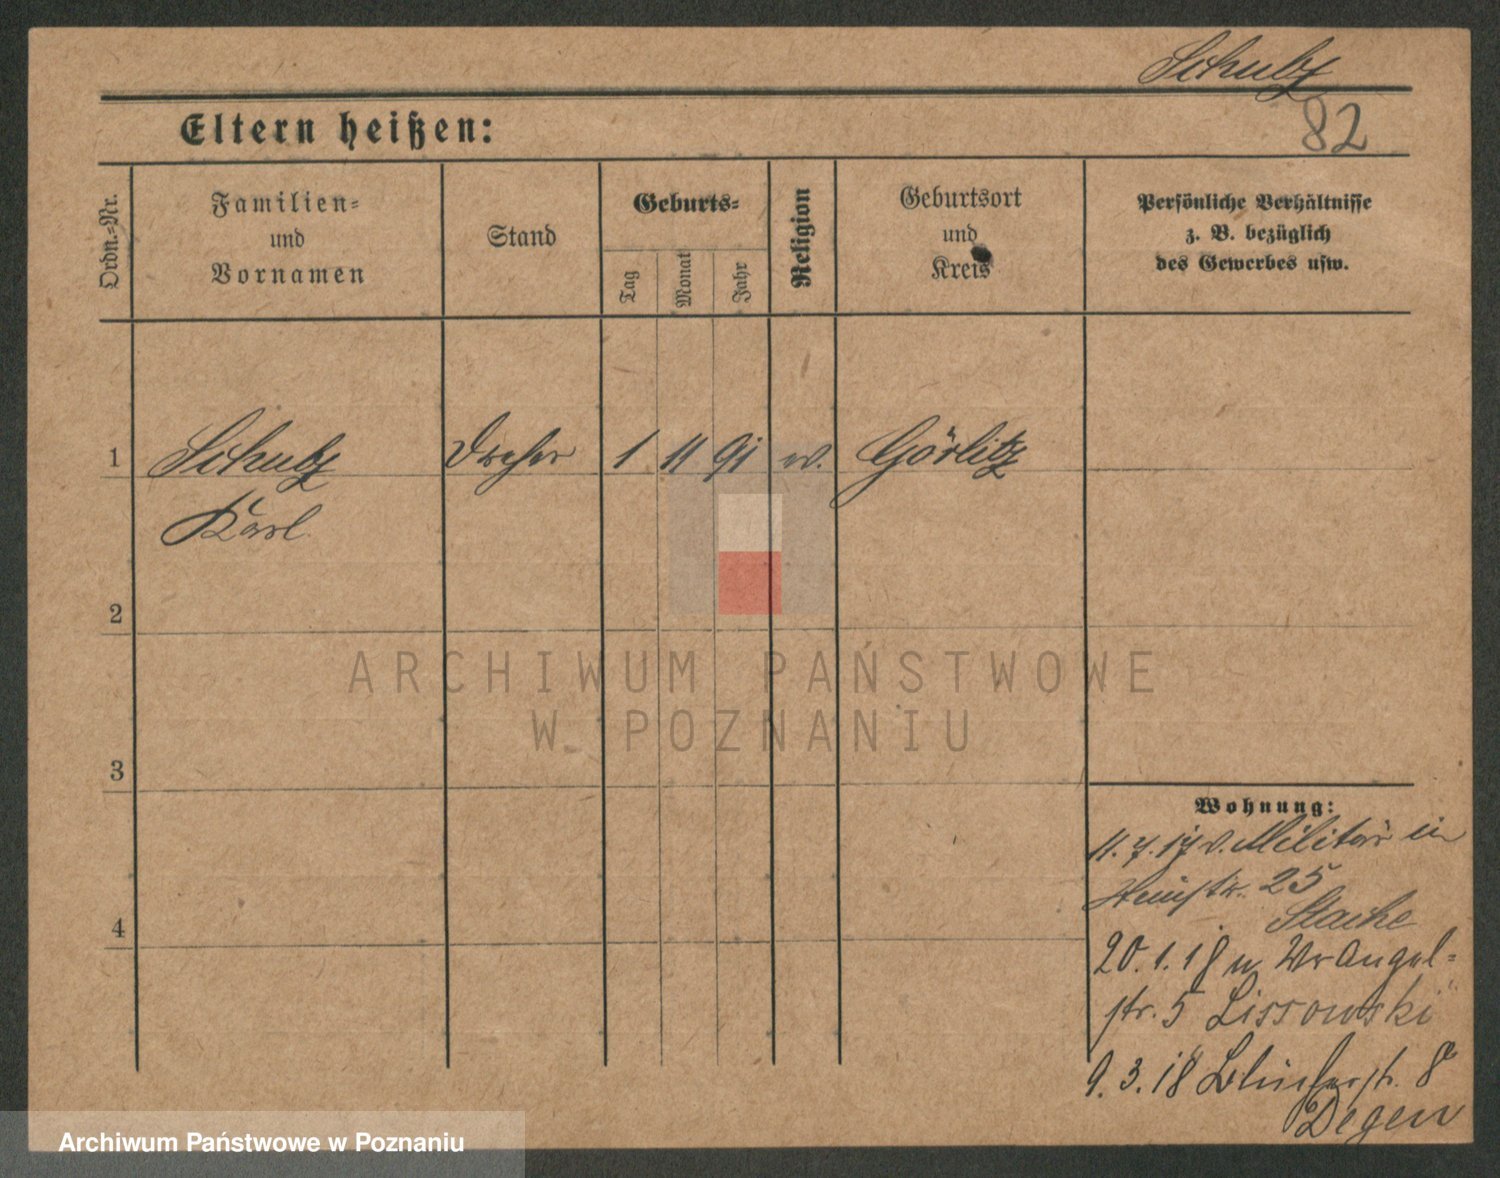 Schulz
82
Eltern heißen:
Ordn.-Nr.
Familien-
und
Vornamen
Stand
Geburts-
Tag
Monat
Jahr
Religion
Geburtsort
und
Kreis
Persönliche Verhältnisse
z. B. bezüglich
des Gewerbes usw.
1
Schulz Dreher 1 11 91 Görlitz
Karl
2
3
4
Wohnung:
11.7.17 v. Militär in
25
Stache
20.1.18 n. Wrangel-
str. 5 Lissowski
9.3.18 Blücherstr. 8
Degen
ARCHIWUM PAŃSTWOWE
W POZNANIU
Archiwum Państwowe w Poznaniu